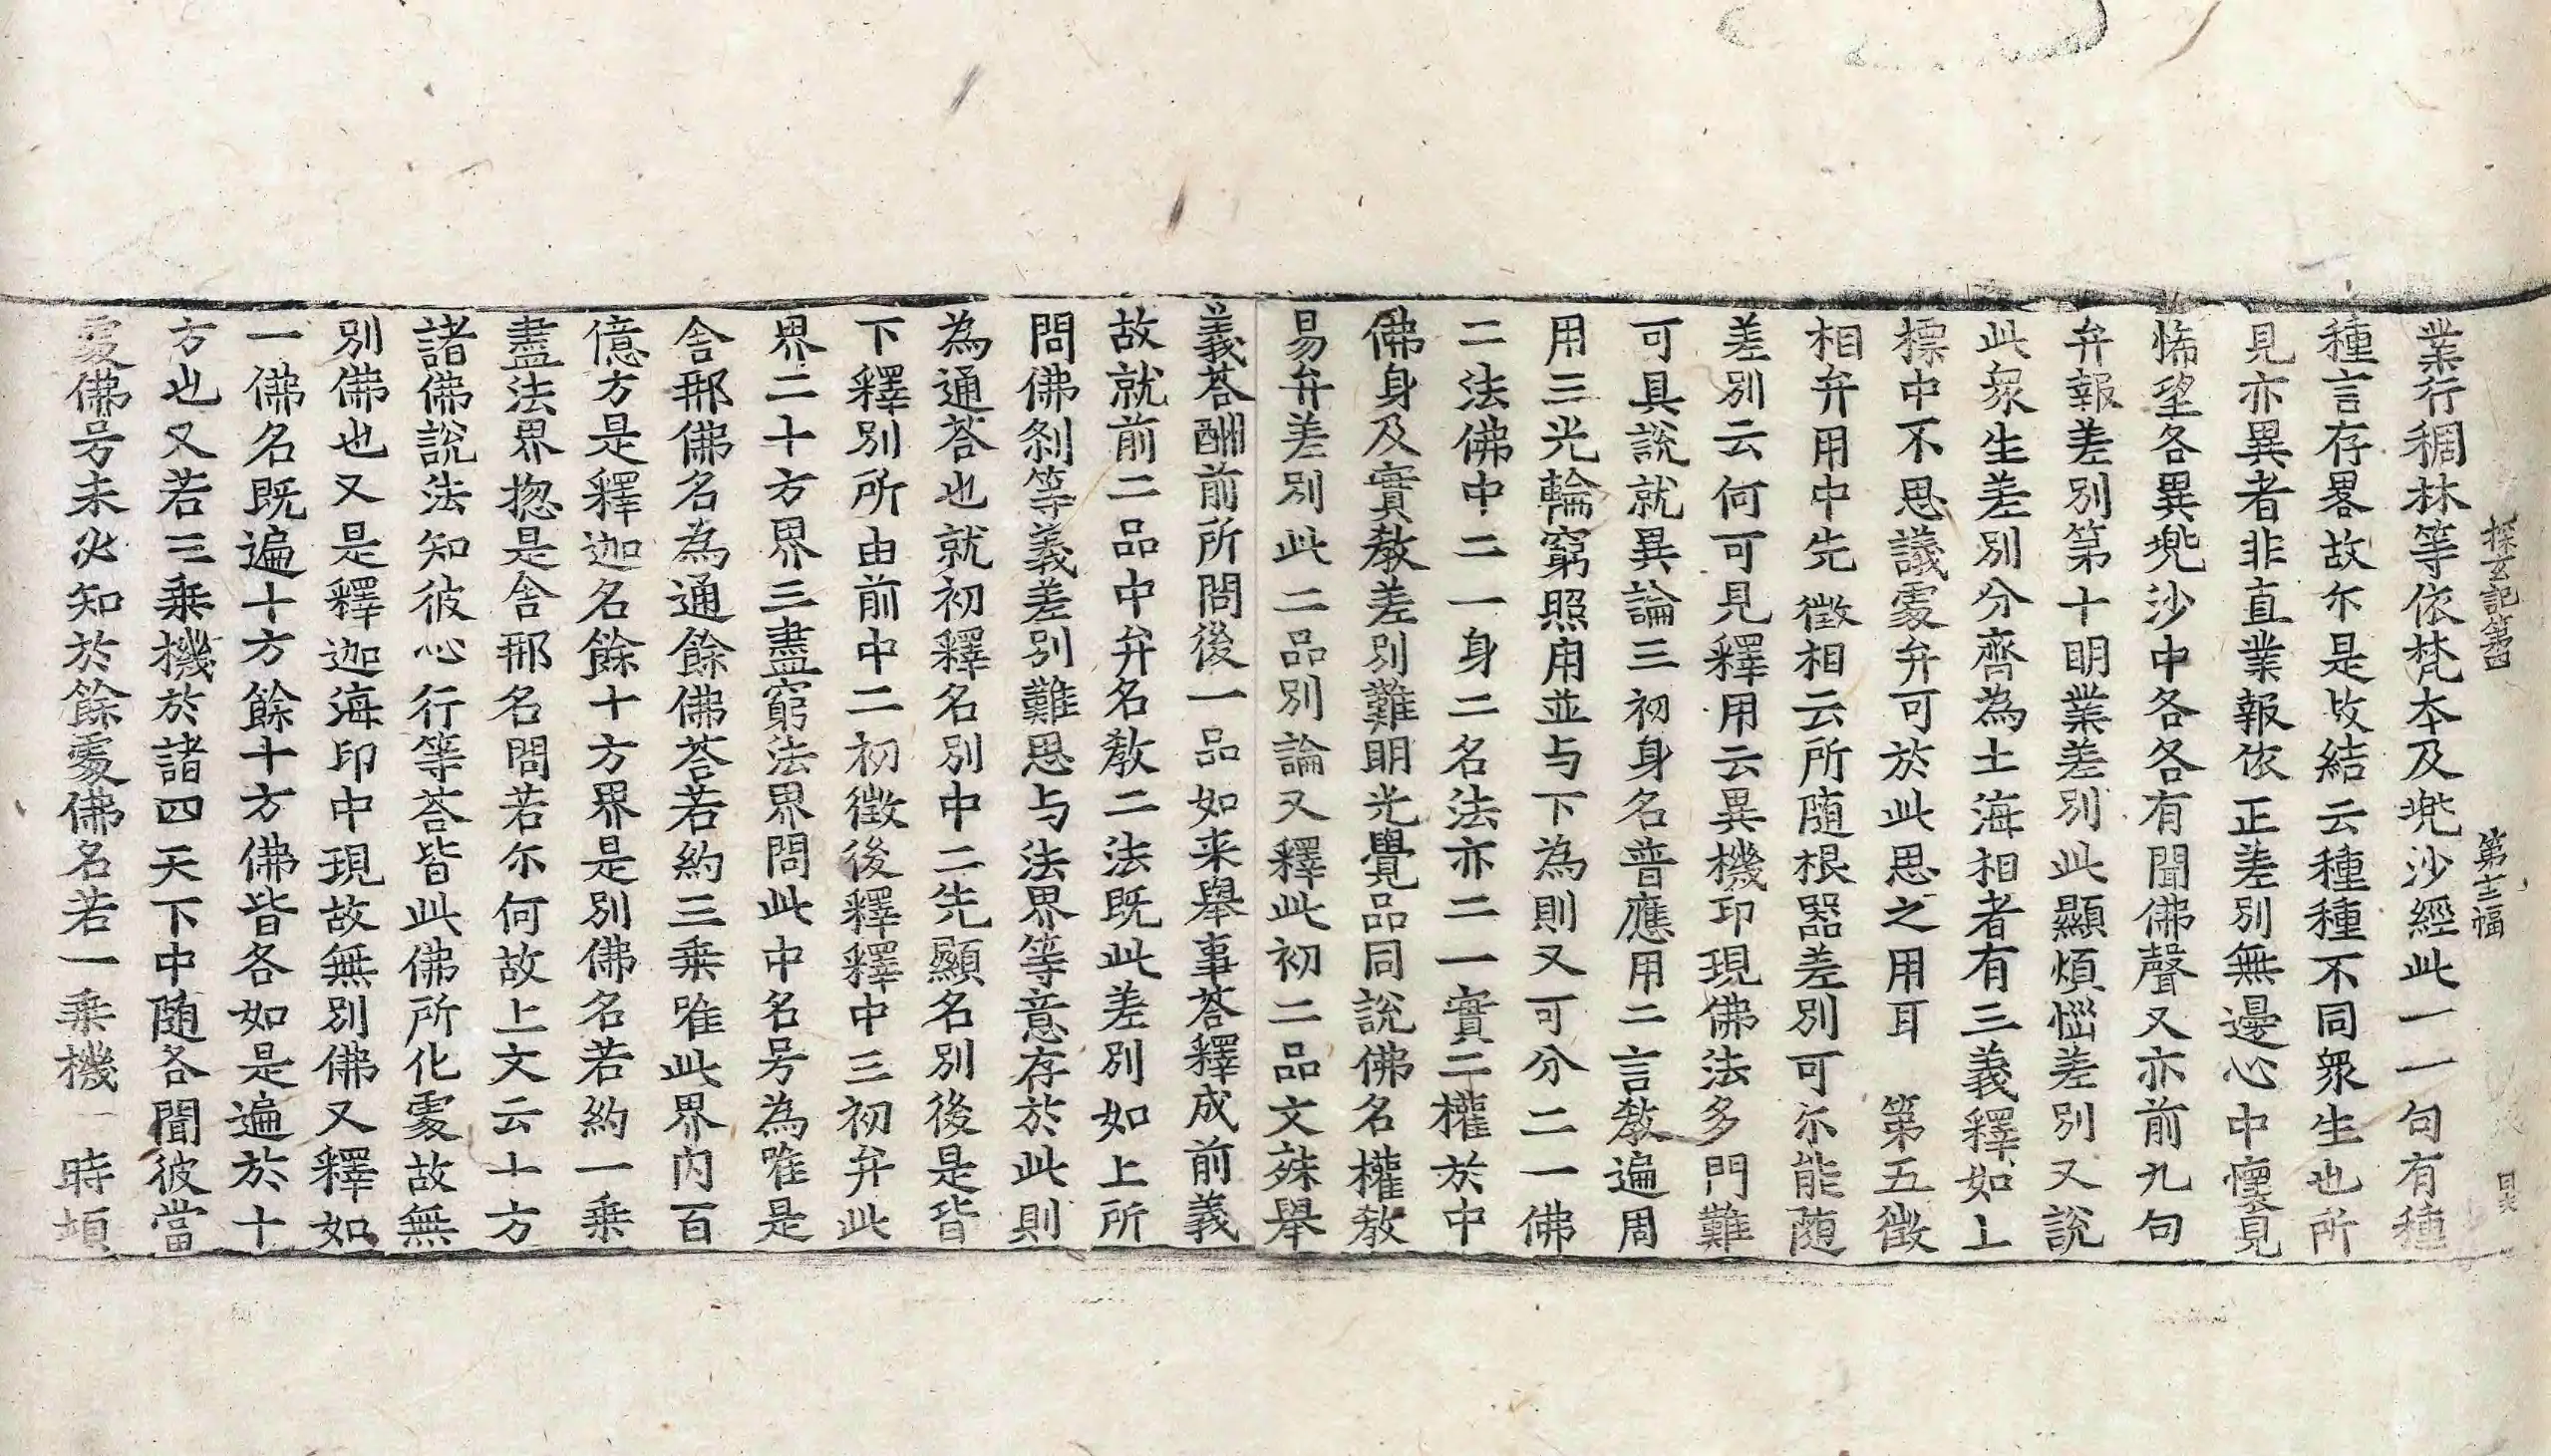 探玄記第四 第十三幅
業行稠林等依梵本及兠沙經此一一句有種
種言存畧故尔是故結云種種不同衆生也所
見亦異者非直業報依正差別無邊心中懷見
悕望各異兠沙中各各有聞佛聲又亦前九句
弁報差別第十明業差別此顯煩惱差別又說
此衆生差別分齊為土海相者有三義釋如上
摽中不思議處弁可於此思之用耳　第五徵
相弁用中先徵相云所随根器差別可尓能随
差別云何可見釋用云異機印現佛法多門難
可具說就異論三初身名普應用二言教遍周
用三光輪窮照用並与下為則又可分二一佛
二法佛中二一身二名法亦二一實二權於中
佛身及實教差別難明光覺品同說佛名權教
易弁差別此二品別論又釋此初二品文殊舉
義荅酬前所問後一品如来舉事荅釋成前義
故就前二品中弁名教二法既此差別如上所
問佛刹等義差別難思与法界等意存於此則
為通荅也就初釋名別中二先顯名別後是皆
下釋別所由前中二初徵後釋釋中三初弁此
界二十方界三盡窮法界問此中名号為唯是
舍那佛名為通餘佛荅若約三乗唯此界内百
億方是釋迦名餘十方界是別佛名若約一乗
盡法界揔是舍那名問若尓何故上文云十方
諸佛說法知彼心行等荅皆此佛所化處故無
別佛也又是釋迦海印中現故無別佛又釋如
一佛名既遍十方餘十方佛皆各如是遍於十
方也又若三乗機於諸四天下中随各聞彼當
處佛号未必知於餘處佛名若一乗機一時頓